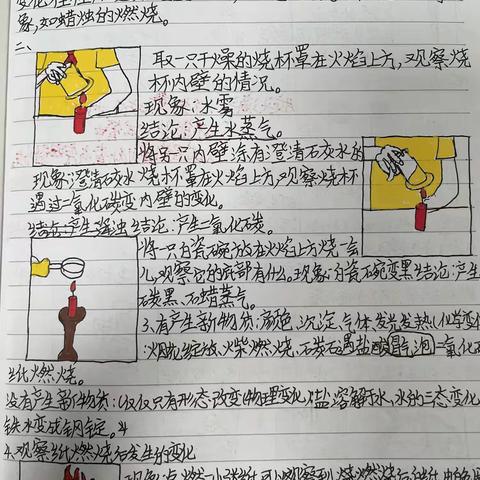 象,如蜡烛的燃烧。
二、
取一只干燥的烧杯罩在火焰上方,观察烧
杯内壁的情况。
现象:水雾
结论:产生水蒸气。
将另一只内壁涂有澄清石灰水的
现象:澄清石灰水 烧杯罩在火焰上方,观察烧杯
遇过二氧化碳变 内壁的变化。
结论:产生 浑浊 结论:产生二氧化碳。
将一只白瓷碗放在火焰上方烧一会
儿,观察它的底部有什么。现象:白瓷碗变黑结论:产生
碳黑、石蜡蒸气。
3、有产生新物质:颜色、沉淀、气体、发光发热(化学变化
:烟花绽放、火柴燃烧、石炭石遇盐酸冒气泡=二氧化碳
纸燃烧。
没有产生新物质:(仅仅只有形态改变)物理变化,盐溶解于水、水的三态变化
铁水变成钢锭。
4、观察纸燃烧和发生的变化
现象:点燃一小张纸,可以观察到